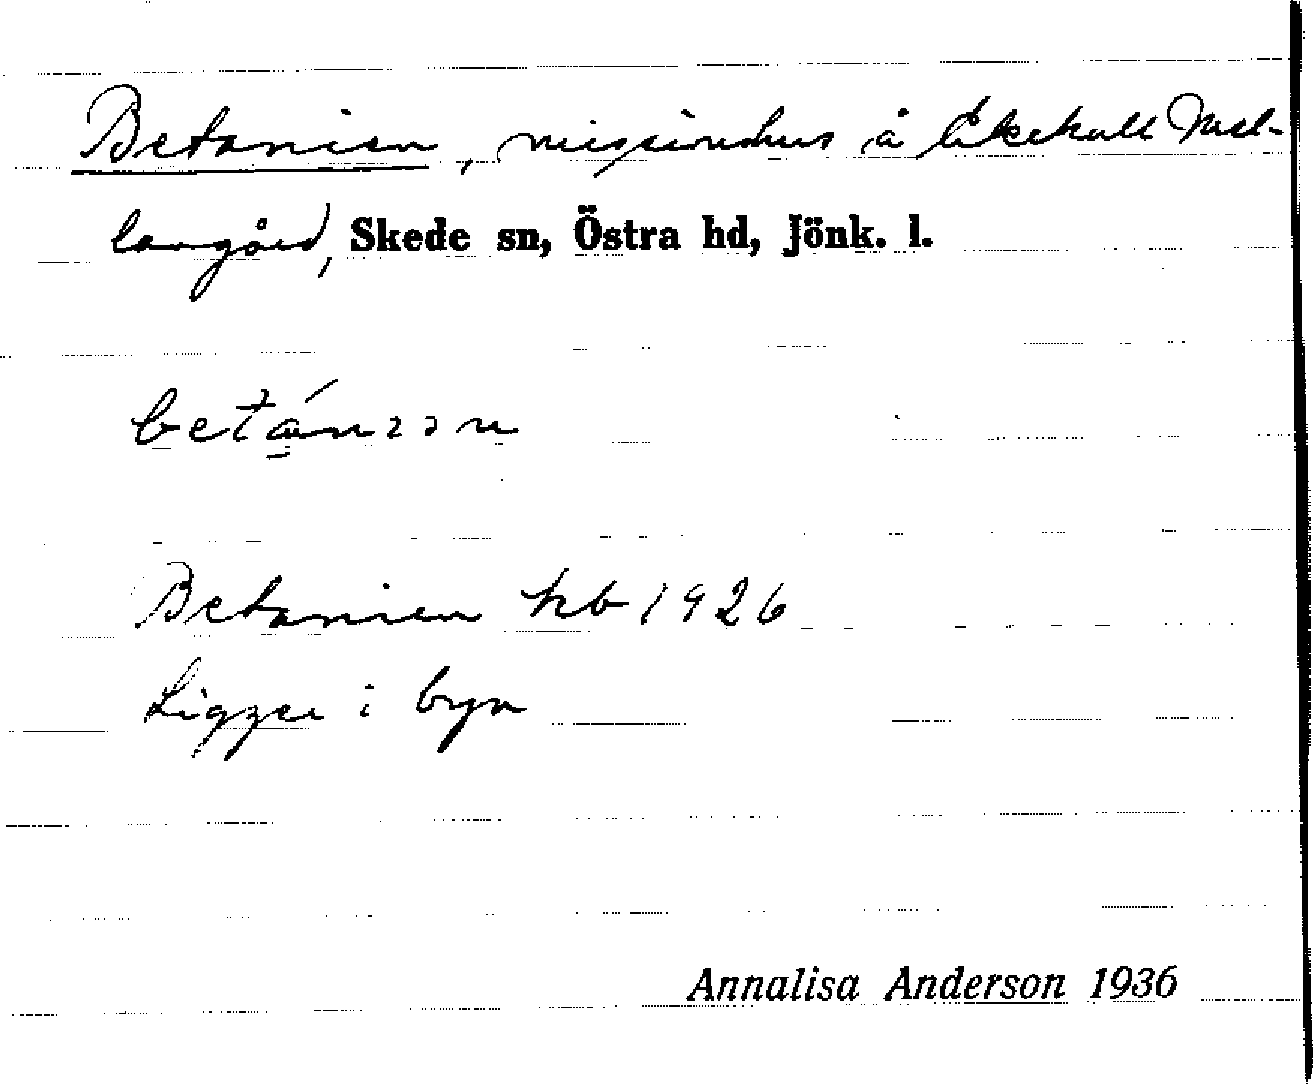 Betanien, missionshus å Ekehult Mel-
langård, Skede sn, Östra hd, Jönk. l.
Betanien kb 1926
Ligger i byn
Annalisa Anderson 1936